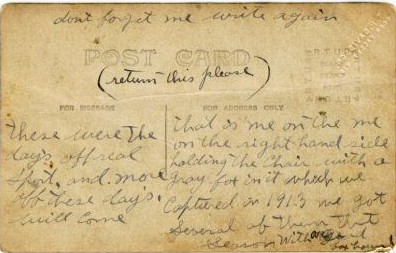 dont forget me write again
POST CARD
(return this please)
FOR MESSAGE
FOR ADDRESS ONLY
these were the
days of real
Sport, and more
of these days.
Will Come
that is me on the me
on the right hand side
holding the Chair with a
gray fox in it which we
Captured in 1913 we got
Several of them that
Season With our good
fox hound